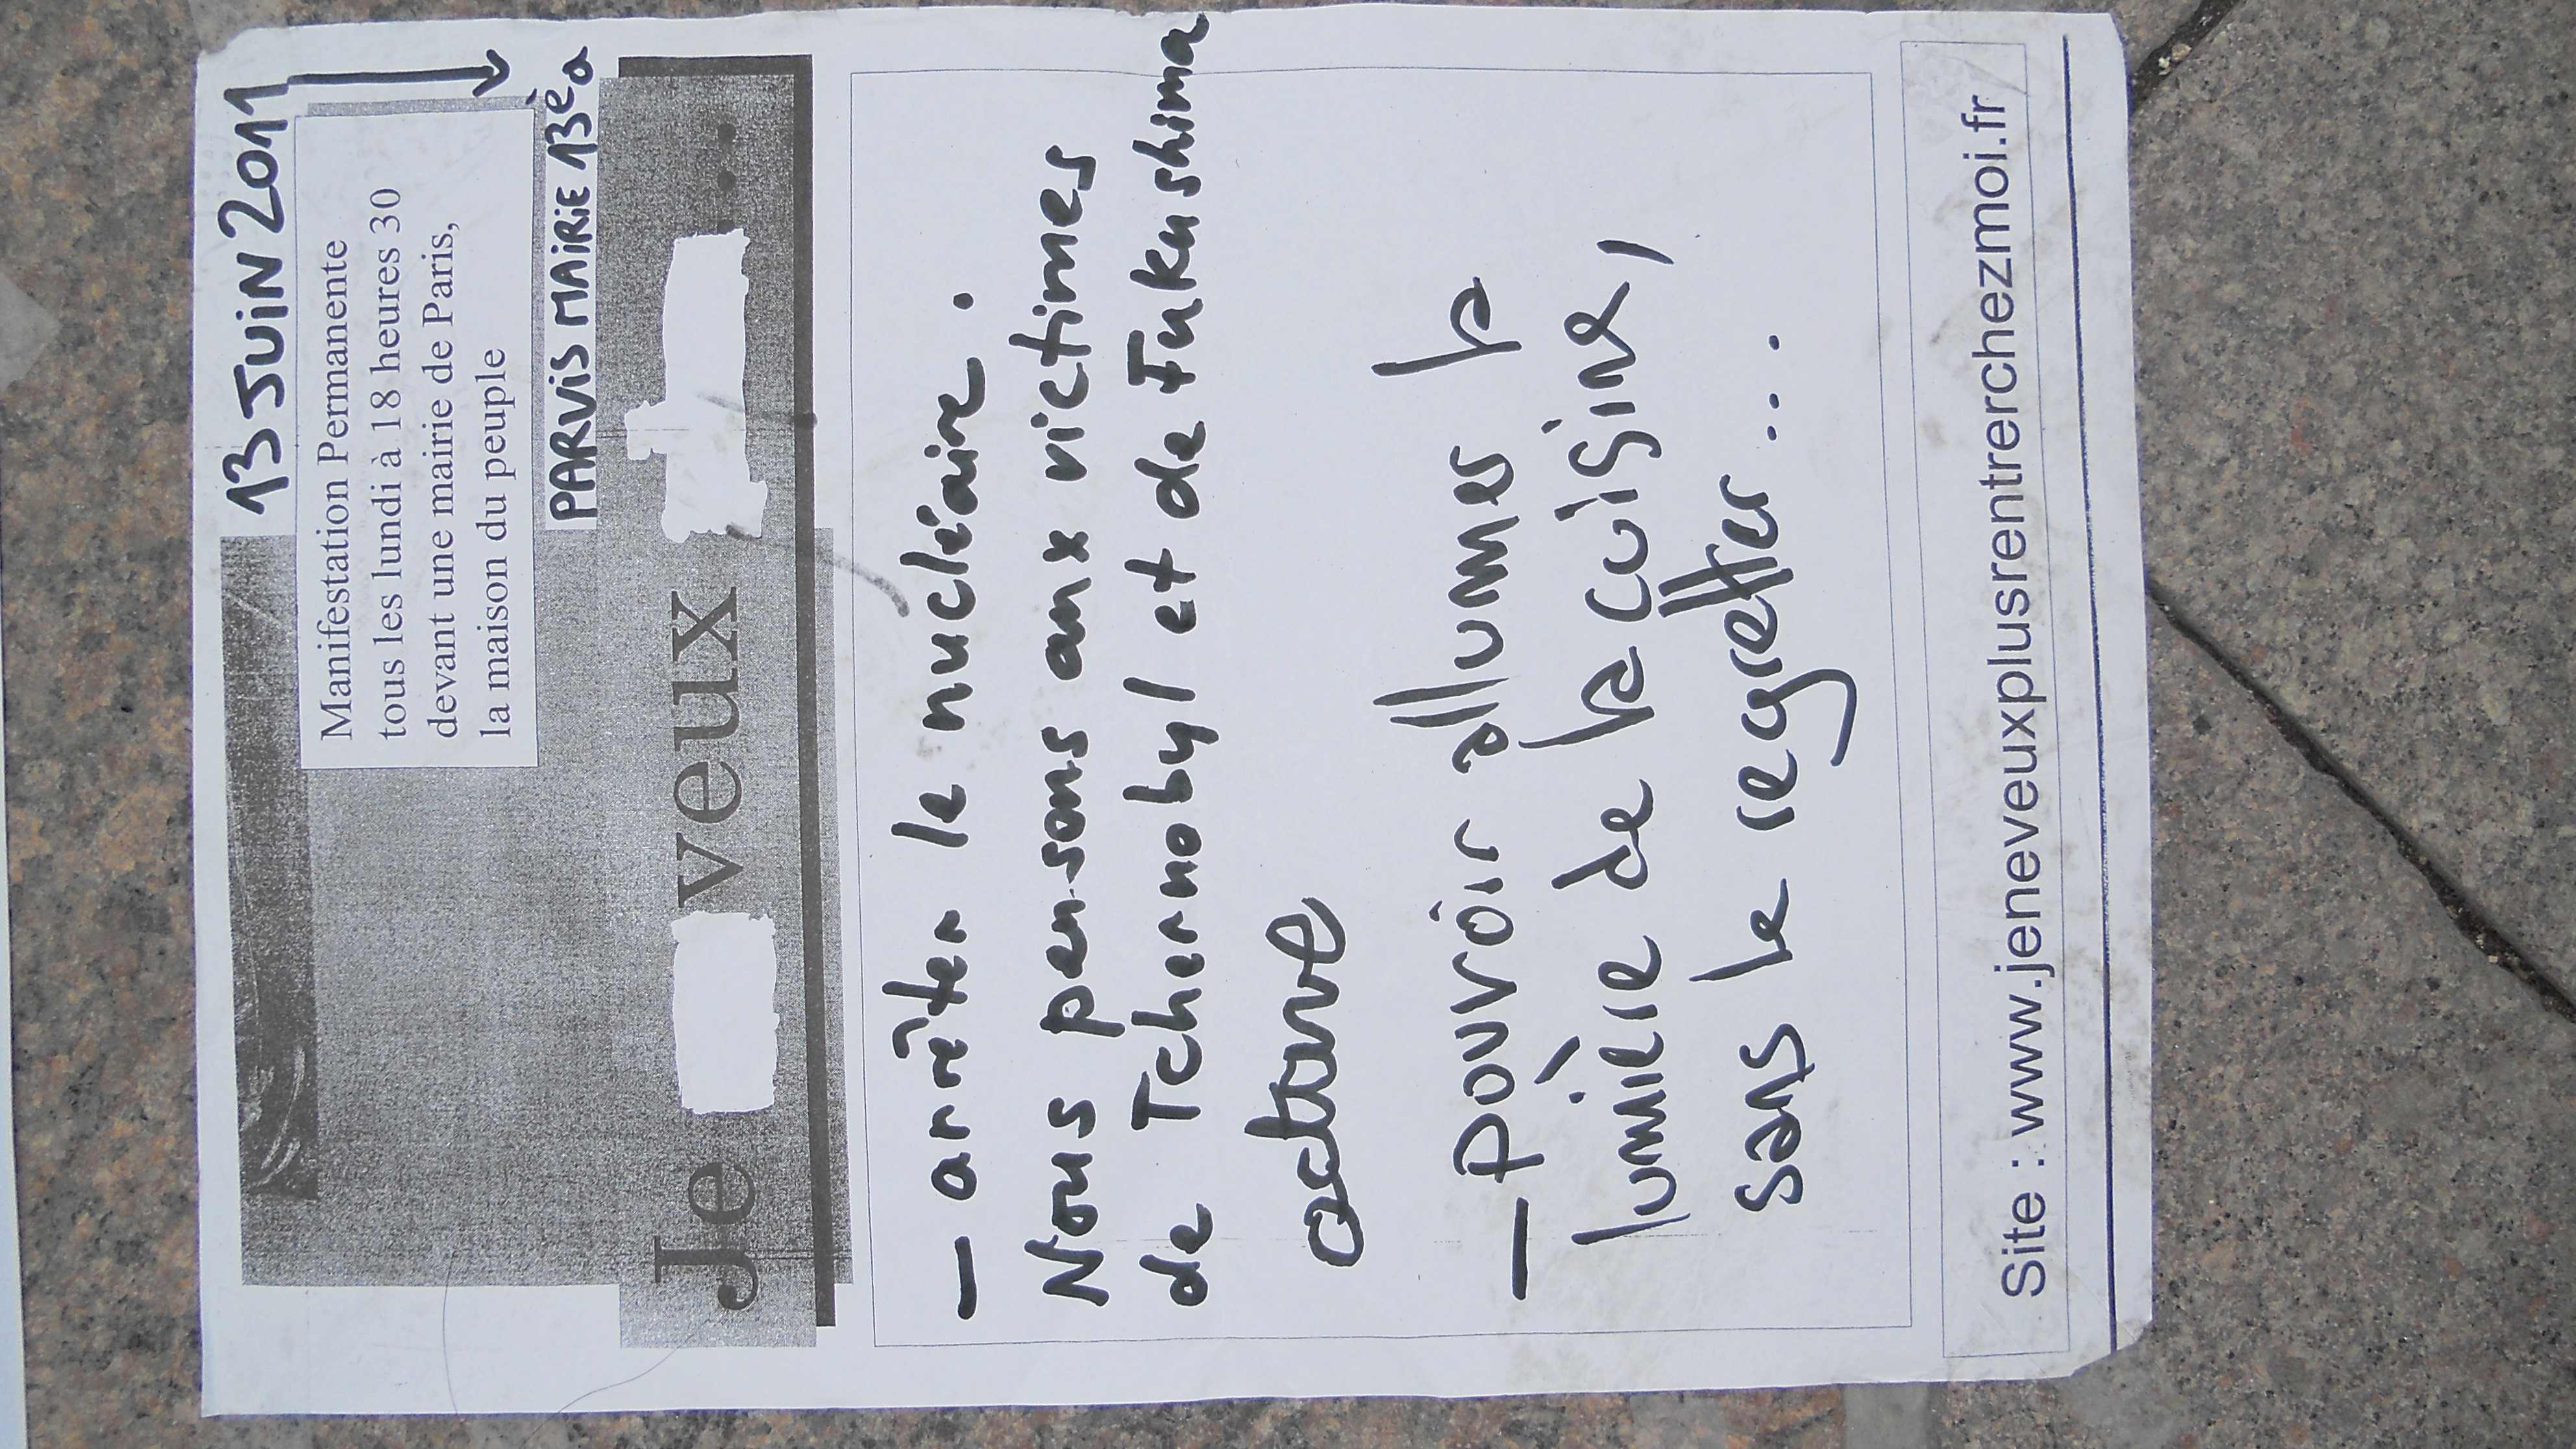 13 JUIN 2011
Manifestation Permanente
tous les lundi à 18 heures 30
devant une mairie de Paris,
la maison du peuple
PARVIS MAIRIE 13è a
Je veux ...
— arrêter le nucléaire.
Nous pensons aux victimes
de Tchernobyl et de Fukushima
octave
— pouvoir allumer la
lumière de la cuisine,
sans le regretter ....
Site : www.jeneveuxplusrentrerchezmoi.fr